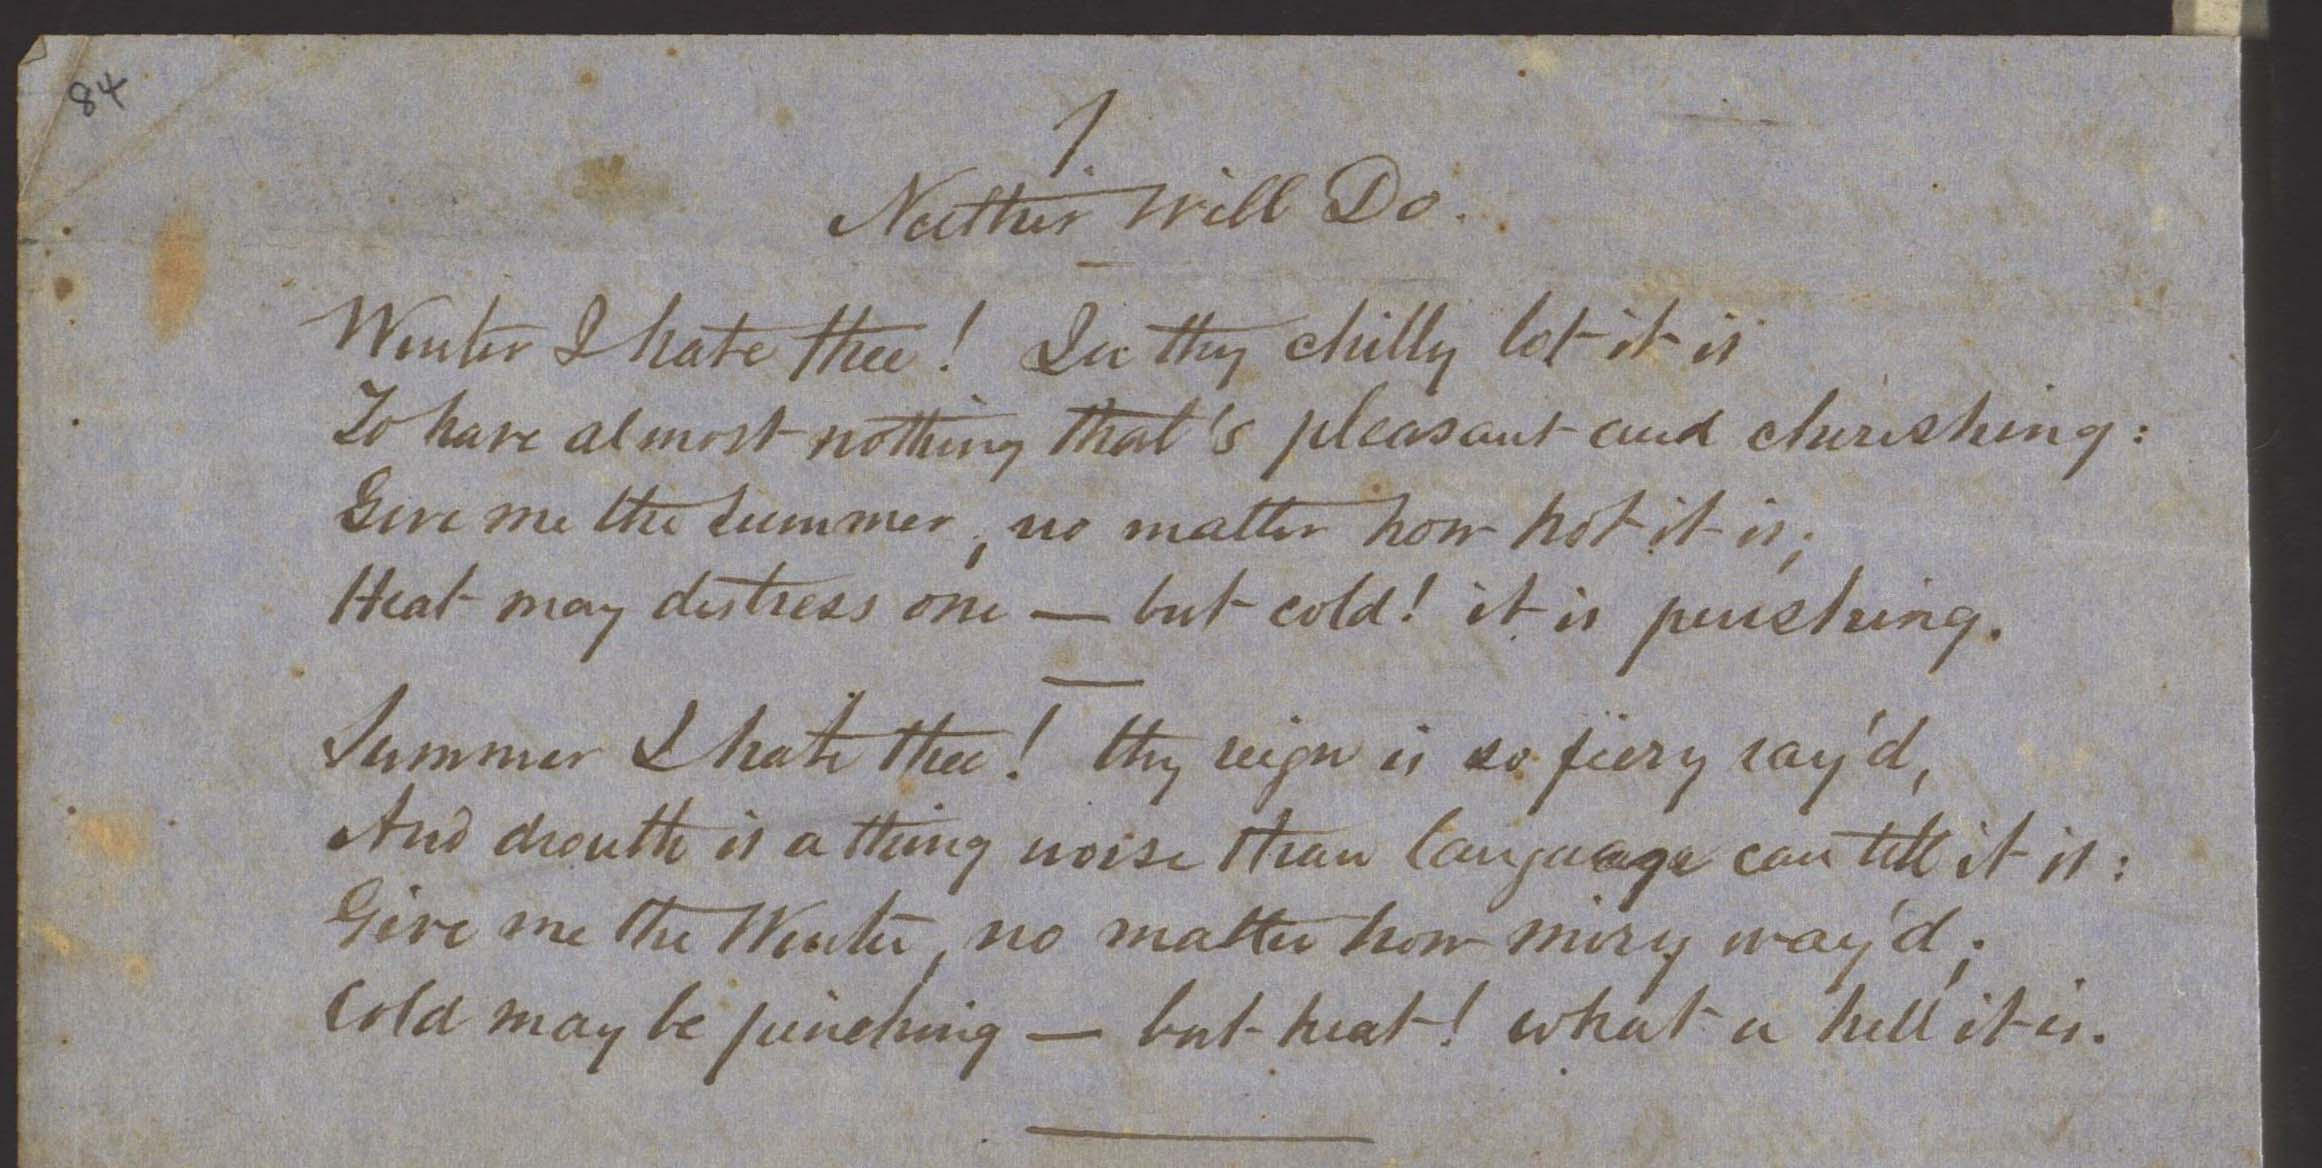 84
1.
Neither Will Do.
Winter I hate thee! In thy chilly lot it is
To have almost nothing that's pleasant and cherishing:
Give me the Summer, no matter how hot it is;
Heat may distress one — but cold! it is perishing.
Summer I hate thee! thy reign is so fiery ray'd,
And drouth is a thing worse than language can tell it is:
Give me the Winter, no matter how miry way'd;
Cold may be pinching — but heat! what a hell it is.